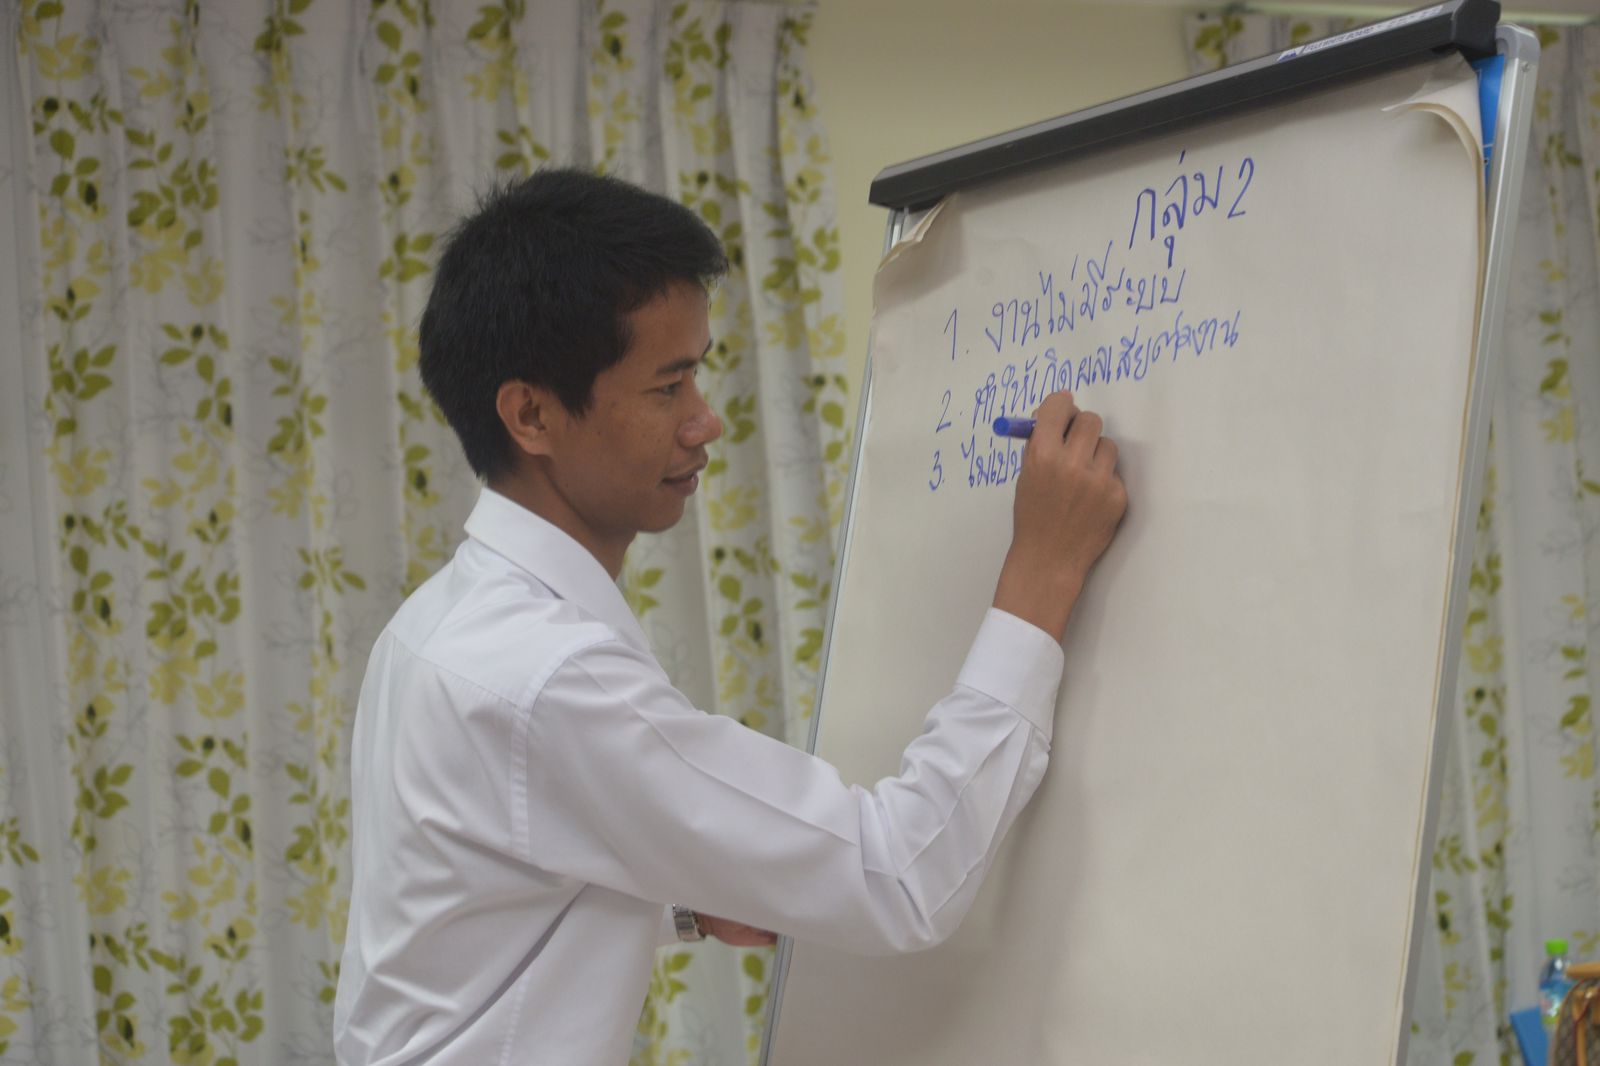 กลุ่ม 2
1. งานไม่มีระบบ
2. ทำให้เกิดผลเสียต่องาน
3. ไม่เป็น